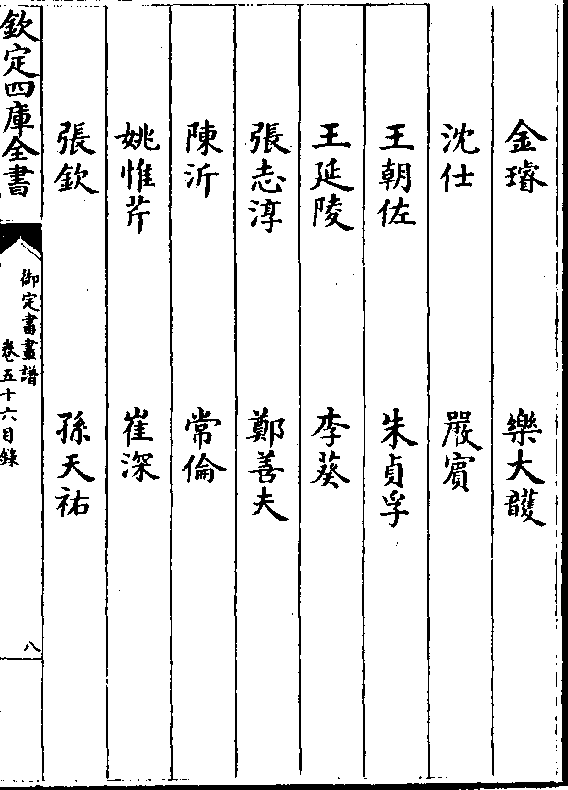 金璿　樂大頀
沈仕　嚴賓
王朝佐　朱貞孚
王延陵　李葵
張志淳　鄭善夫
陳沂　常倫
姚惟芹　崔深
張欽　孫天祐
欽定四庫全書
御定書畫譜
卷五十六目錄
八